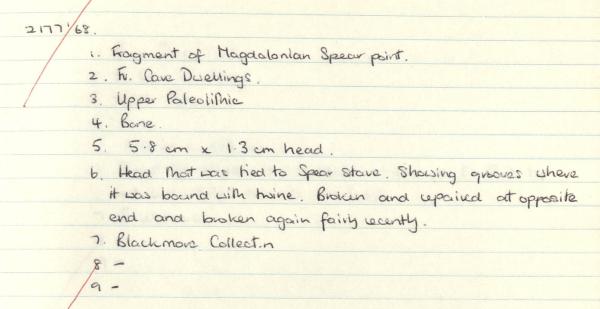 2177'68.
1. Fragment of Magdalonian Spear point.
2. Fr. Cave Dwellings.
3. Upper Paleolithic
4. Bone.
5. 5.8 cm x 1.3 cm head.
6. Head that was tied to Spear stave. Showing grooves where
it was bound with twine. Broken and repaired at opposite
end and broken again fairly recently.
7. Blackmore Collectin
8 -
9 -